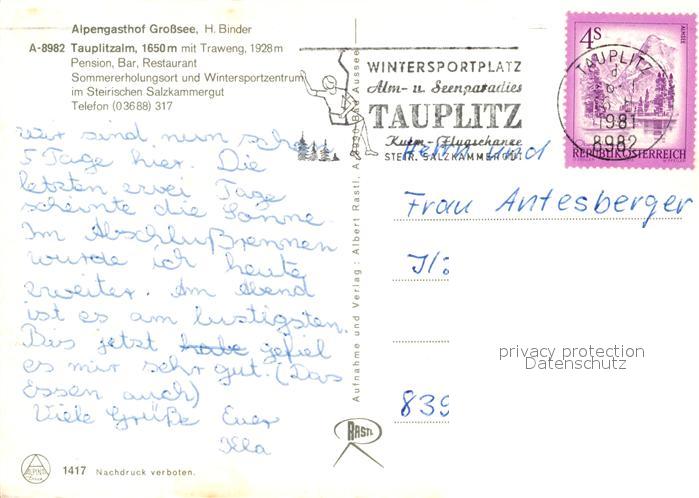 Alpengasthof Großsee, H. Binder
A-8982 Tauplitzalm, 1650 m mit Traweng, 1928 m
Pension, Bar, Restaurant
Sommererholungsort und Wintersportzentrum
im Steirischen Salzkammergut
Telefon (0 36 88) 317
wir sind nun schon
5 Tage hier. Die
letzten zwei Tage
scheinte die Sonne.
Im Abschlußrennen
wurde ich heute
zweiter. Am Abend
ist es am lustigsten.
Bis jetzt habe gefiel
es mir sehr gut. (Das
Essen auch)
Viele Grüße Euer
1417 Nachdruck verboten.
Aufnahme und Verlag: Albert Rastl, A-8990 Bad Aussee
RASTL
WINTERSPORTPLATZ
Alm- u. Seenparadies
TAUPLITZ
Kulm-Flugschanze
STEIR. SALZKAMMERGUT
4S
TAUPLITZ
1981
8982
REPUBLIK ÖSTERREICH
Herrn und
Frau Antesberger
839
privacy protection
Datenschutz